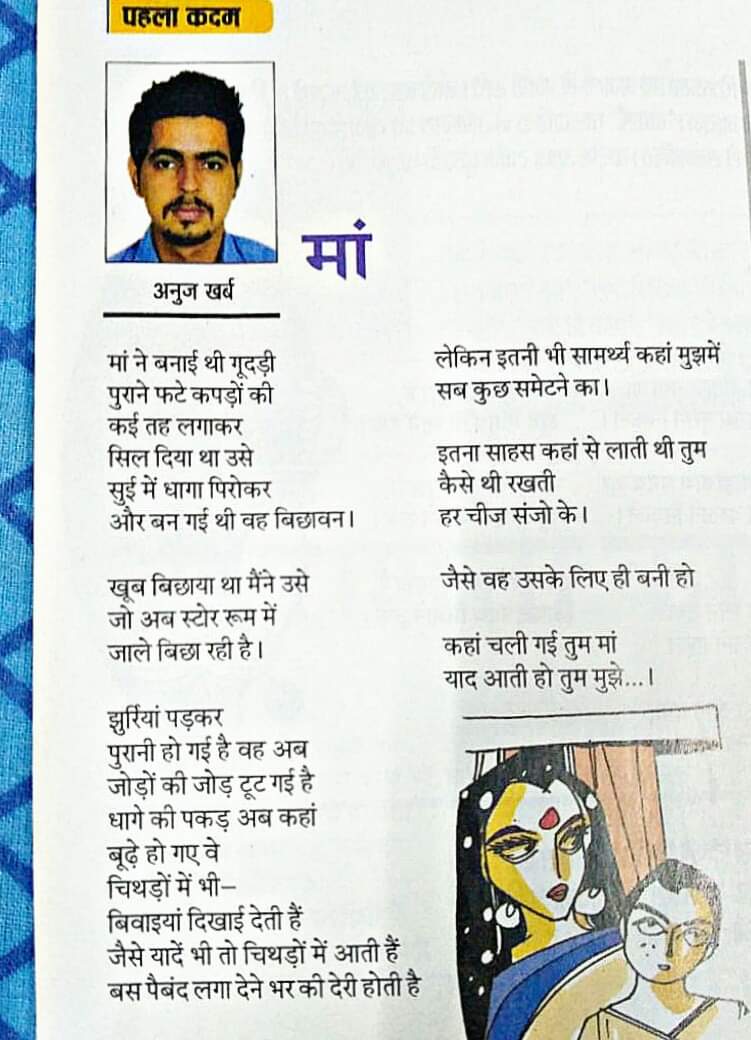 पहला कदम
मां
अनुज खर्ब
मां ने बनाई थी गूदड़ी
पुराने फटे कपड़ों की
कई तह लगाकर
सिल दिया था उसे
सुई में धागा पिरोकर
और बन गई थी वह बिछावन।
खूब बिछाया था मैंने उसे
जो अब स्टोर रूम में
जाले बिछा रही है।
झुर्रियां पड़कर
पुरानी हो गई है वह अब
जोड़ों की जोड़ टूट गई है
धागे की पकड़ अब कहां
बूढ़े हो गए वे
चिथड़ों में भी–
बिवाइयां दिखाई देती हैं
जैसे यादें भी तो चिथड़ों में आती हैं
बस पैबंद लगा देने भर की देरी होती है
लेकिन इतनी भी सामर्थ्य कहां मुझमें
सब कुछ समेटने का।
इतना साहस कहां से लाती थी तुम
कैसे थी रखती
हर चीज संजो के।
जैसे वह उसके लिए ही बनी हो
कहां चली गई तुम मां
याद आती हो तुम मुझे...।